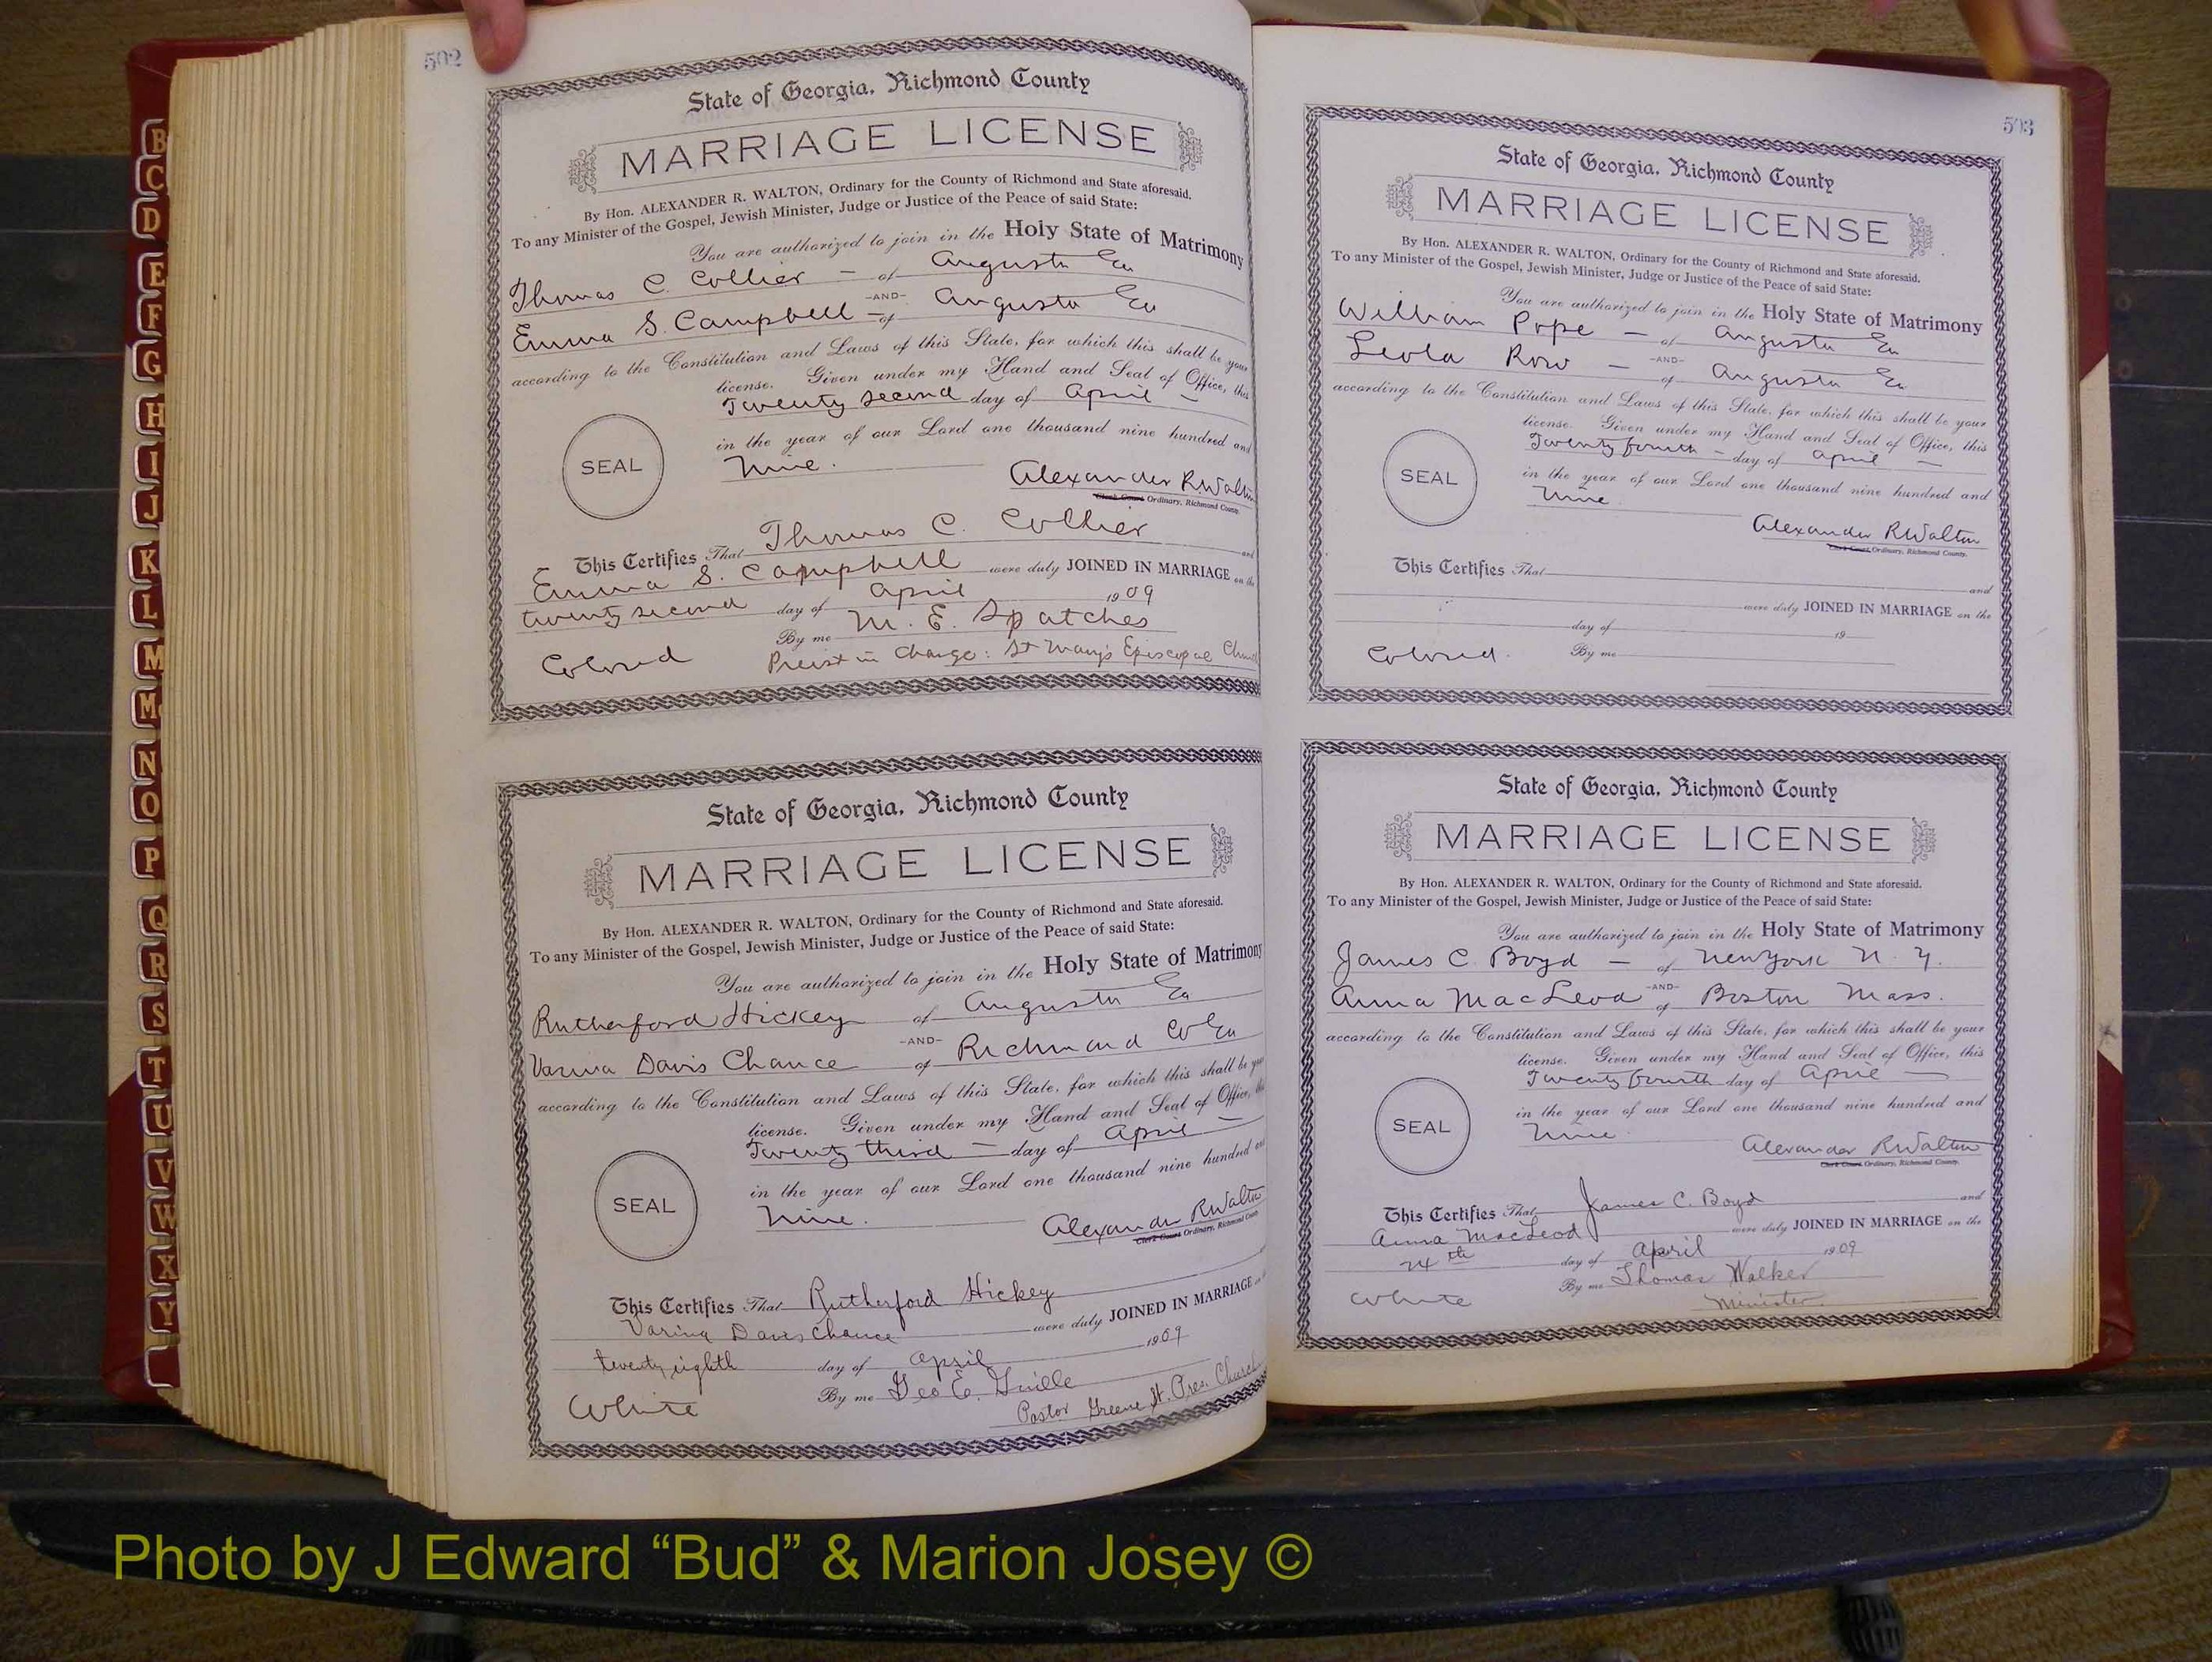 B
C
D
E
F
G
H
I
J
K
L
M
Mc
N
O
P
Q
R
S
T
U
V
W
X
Y
502
State of Georgia, Richmond County
MARRIAGE LICENSE
By Hon. ALEXANDER R. WALTON, Ordinary for the County of Richmond and State aforesaid.
To any Minister of the Gospel, Jewish Minister, Judge or Justice of the Peace of said State:
You are authorized to join in the Holy State of Matrimony
Thomas C. Collier - of Augusta Ga
-AND-
Emma S. Campbell - of Augusta Ga
according to the Constitution and Laws of this State, for which this shall be your
license. Given under my Hand and Seal of Office, this
Twenty second day of April -
in the year of our Lord one thousand nine hundred and
SEAL
Nine.
Alexander R Walton
Clerk Court Ordinary, Richmond County.
This Certifies That Thomas C. Collier and
Emma S. Campbell were duly JOINED IN MARRIAGE on the
twenty second day of April 1909
By me M. E. Spatches
Colored Preist in Charge: St Mary's Episcopal Church
State of Georgia, Richmond County
MARRIAGE LICENSE
By Hon. ALEXANDER R. WALTON, Ordinary for the County of Richmond and State aforesaid.
To any Minister of the Gospel, Jewish Minister, Judge or Justice of the Peace of said State:
You are authorized to join in the Holy State of Matrimony
Rutherford Hickey of Augusta Ga
-AND-
Varina Davis Chance of Richmond Co Ga
according to the Constitution and Laws of this State, for which this shall be your
license. Given under my Hand and Seal of Office, this
Twenty third - day of April -
in the year of our Lord one thousand nine hundred and
SEAL
Nine.
Alexander R Walton
Clerk Court Ordinary, Richmond County
This Certifies That Rutherford Hickey
Varina Davis Chance were duly JOINED IN MARRIAGE on
twenty eighth day of April 1909
By me Geo E. Guille
White Pastor Greene St. Pres. Church
503
State of Georgia, Richmond County
MARRIAGE LICENSE
By Hon. ALEXANDER R. WALTON, Ordinary for the County of Richmond and State aforesaid.
To any Minister of the Gospel, Jewish Minister, Judge or Justice of the Peace of said State:
You are authorized to join in the Holy State of Matrimony
William Pope - of Augusta Ga
-AND-
Leola Row - of Augusta Ga
according to the Constitution and Laws of this State, for which this shall be your
license. Given under my Hand and Seal of Office, this
Twenty fourth - day of April -
in the year of our Lord one thousand nine hundred and
SEAL
Nine.
Alexander R Walton
Clerk Court Ordinary, Richmond County.
This Certifies That and
were duly JOINED IN MARRIAGE on the
day of 19
Colored. By me
State of Georgia, Richmond County
MARRIAGE LICENSE
By Hon. ALEXANDER R. WALTON, Ordinary for the County of Richmond and State aforesaid.
To any Minister of the Gospel, Jewish Minister, Judge or Justice of the Peace of said State:
You are authorized to join in the Holy State of Matrimony
James C Boyd - of New York N. Y.
-AND-
Anna MacLeod of Boston Mass.
according to the Constitution and Laws of this State, for which this shall be your
license. Given under my Hand and Seal of Office, this
Twenty fourth day of April -
in the year of our Lord one thousand nine hundred and
SEAL
Nine.
Alexander R Walton
Clerk Court Ordinary, Richmond County.
This Certifies That James C. Boyd and
Anna MacLeod were duly JOINED IN MARRIAGE on the
24th day of April 1909
By me Thomas Walker
White Minister.
Photo by J Edward “Bud” & Marion Josey ©